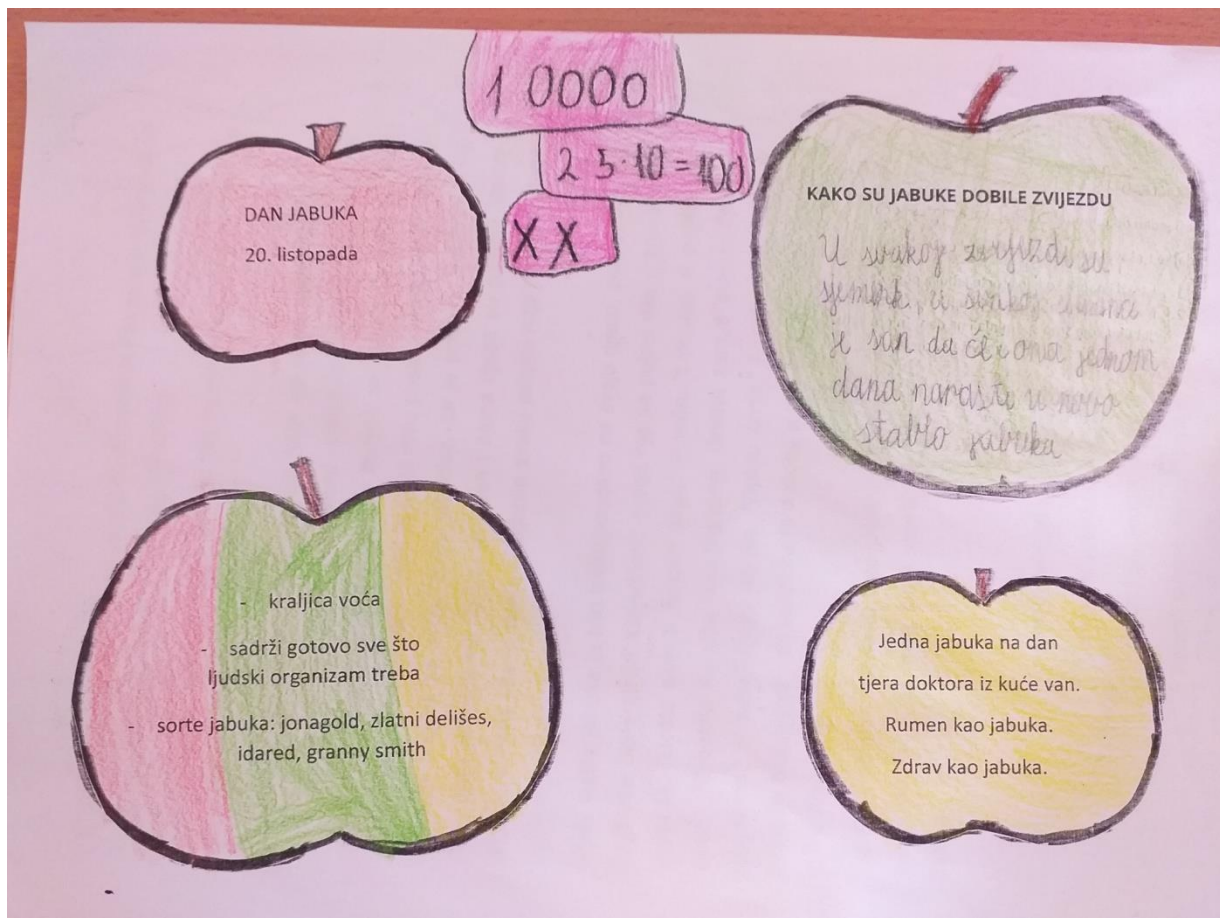 1 0000
2 5·10=100
XX
DAN JABUKA
20. listopada
KAKO SU JABUKE DOBILE ZVIJEZDU
U svakoj zvijezdi su
je san da će i ona jednom
dana narasti u novo
stablo jabuka
- kraljica voća
- sadrži gotovo sve što
ljudski organizam treba
- sorte jabuka: jonagold, zlatni delišes,
idared, granny smith
Jedna jabuka na dan
tjera doktora iz kuće van.
Rumen kao jabuka.
Zdrav kao jabuka.